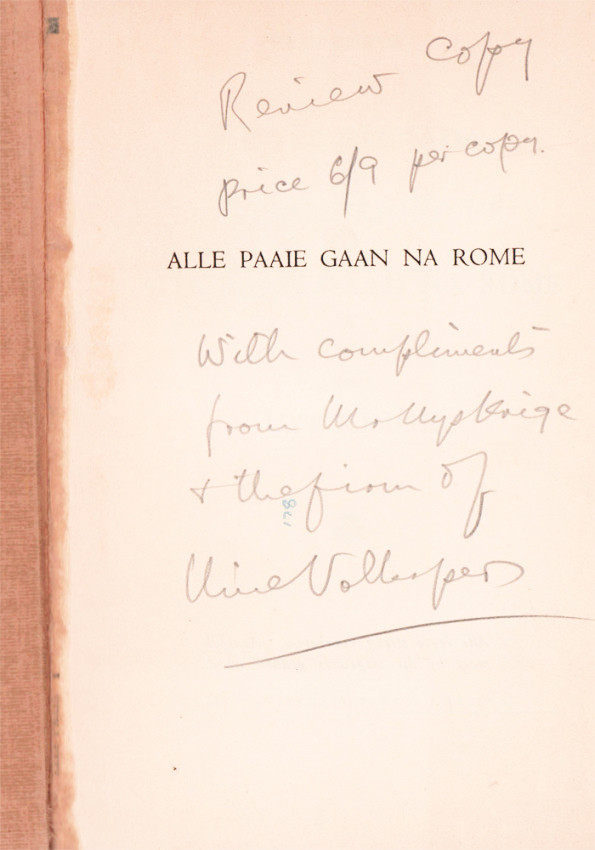 Review copy
price 6/9 per copy.
ALLE PAAIE GAAN NA ROME
With compliments
from Mr Uys Krige
+ the firm of
Unie Volkspers